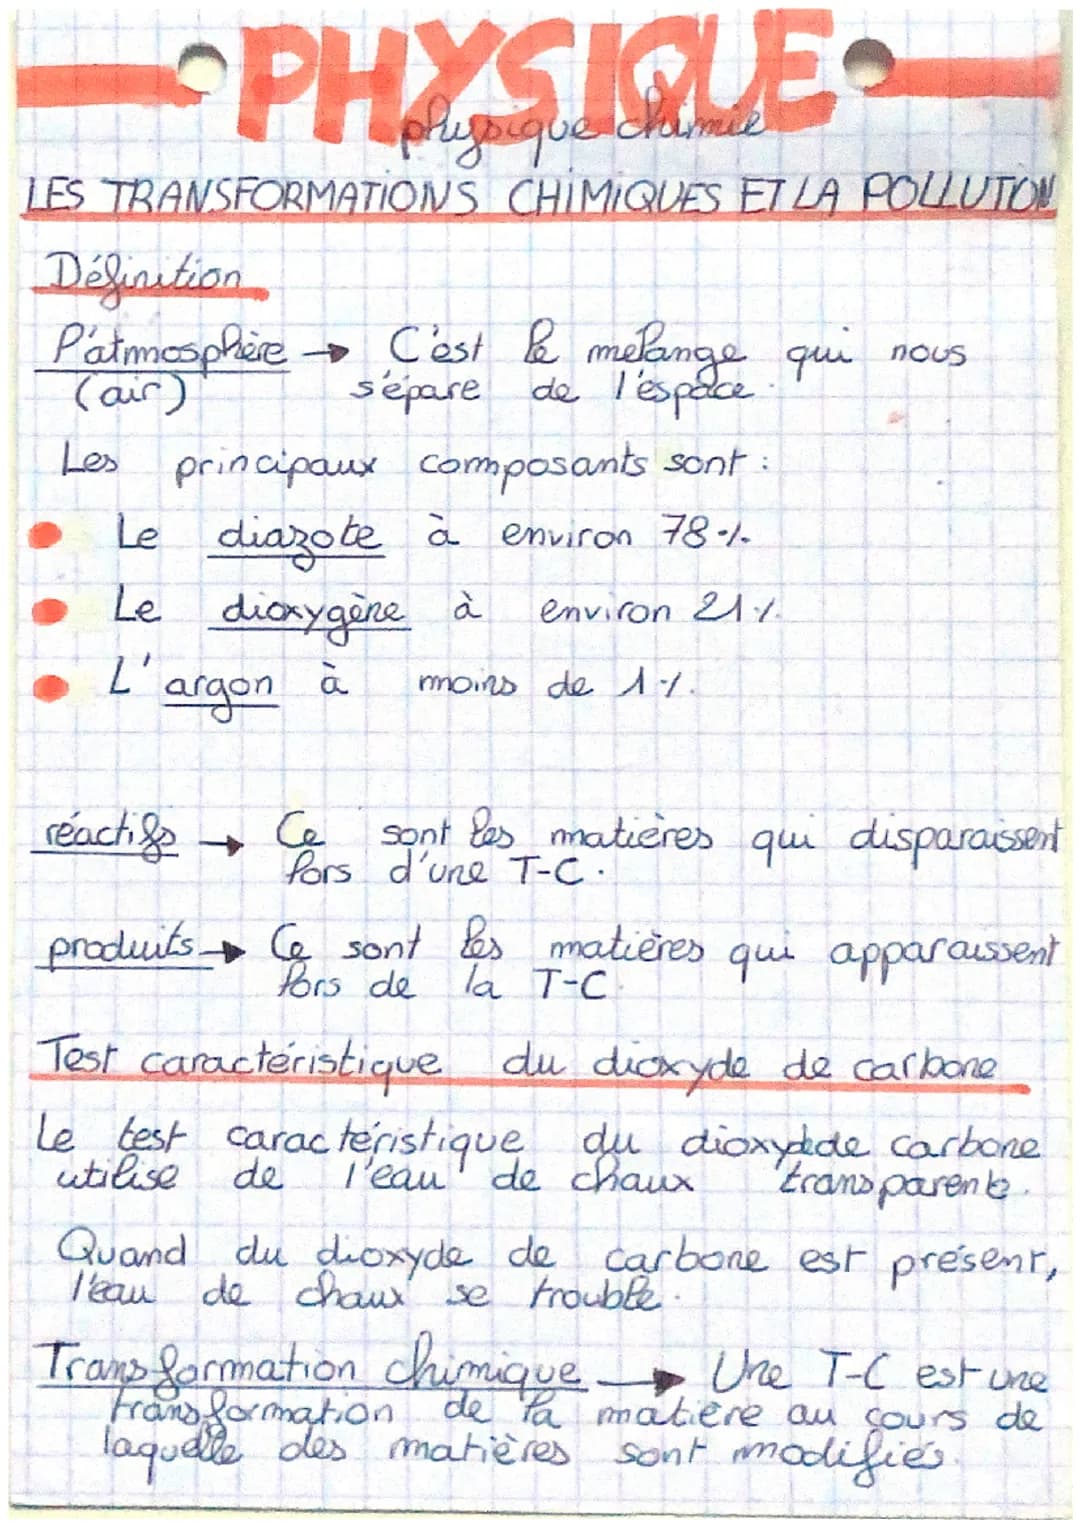 PHYSIQUE
physique chimie
LES TRANSFORMATIONS CHIMIQUES ET LA POLLUTION
Définition
l'atmosphère → C'est le mélange qui nous
(air) sépare de l'espace.
Les principaux composants sont :
Le diazote à environ 78%.
Le dioxygène à environ 21%.
L'argon à moins de 1%.
réactifs → Ce sont les matières qui disparaissent
lors d'une T-C.
produits → Ce sont les matières qui apparaissent
lors de la T-C.
Test caractéristique du dioxyde de carbone
Le test caractéristique du dioxyde de carbone
utilise de l'eau de chaux transparente.
Quand du dioxyde de carbone est présent,
l'eau de chaux se trouble.
Transformation chimique → Une T-C est une
transformation de la matière au cours de
laquelle des matières sont modifiés.